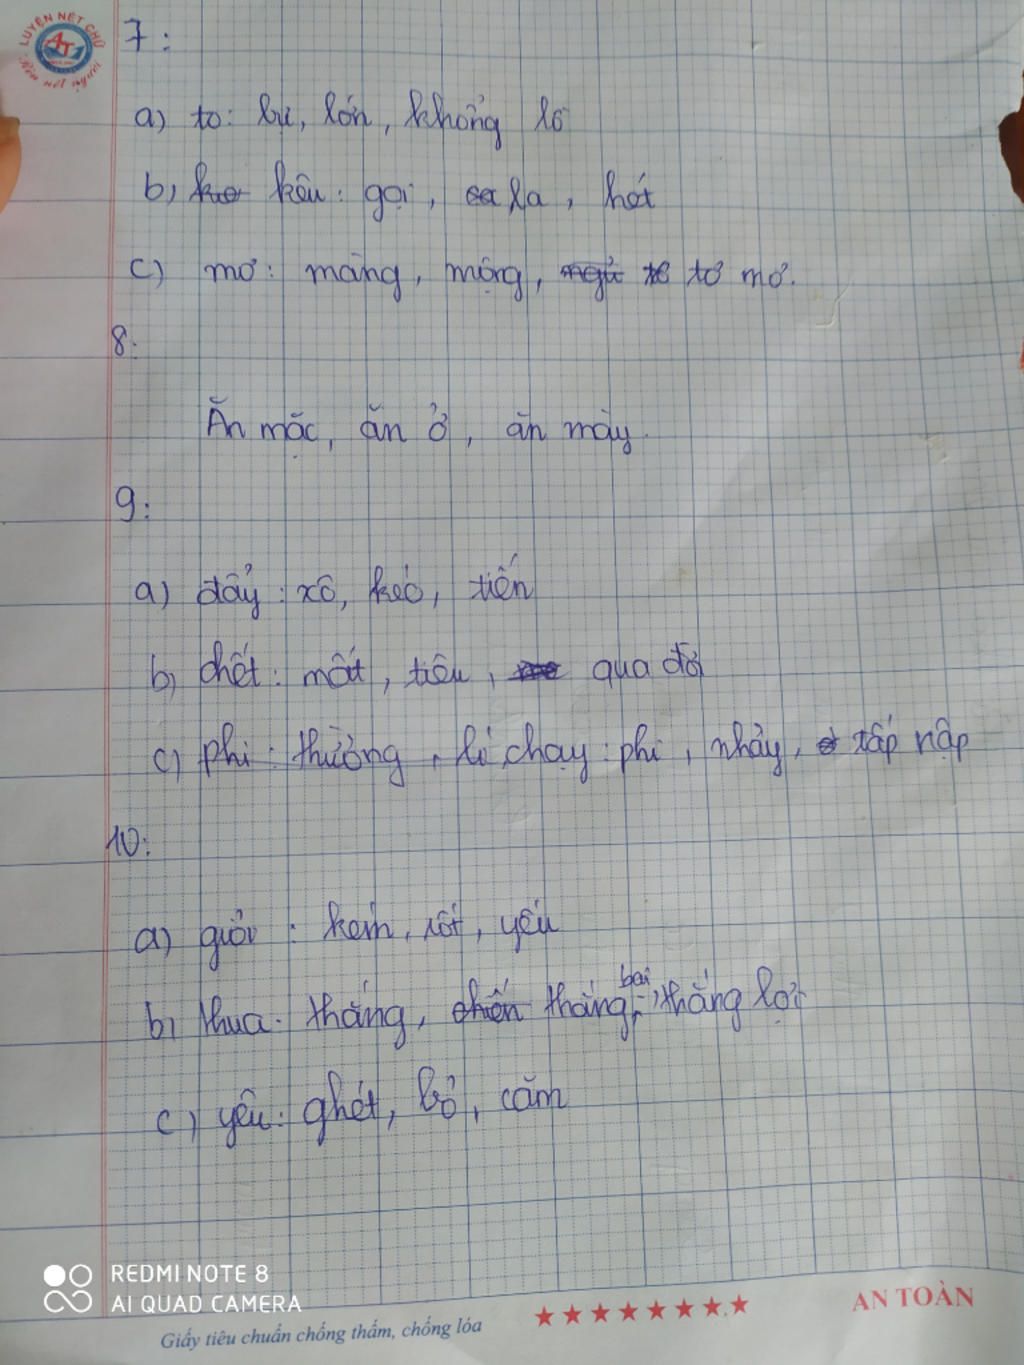 LUYỆN NÉT CHỮ
Rèn nết người
7:
a) to: bự, lớn, khổng lồ
b) kêu: gọi, la, hét
c) mơ: màng, mộng, tơ mơ.
8:
Ăn mặc, ăn ở, ăn mày.
9:
a) đẩy: xô, kéo, tiến
b) chết: mất, tiêu, qua đời
c) phi: thường, lí chạy: phi, nhảy, tấp nập
10:
a) giỏi: kém, yếu
b) thua: thắng, thắng, thắng lợi
c) yêu: ghét, bỏ, căm
REDMI NOTE 8
AI QUAD CAMERA
Giấy tiêu chuẩn chống thấm, chống lóa
AN TOÀN